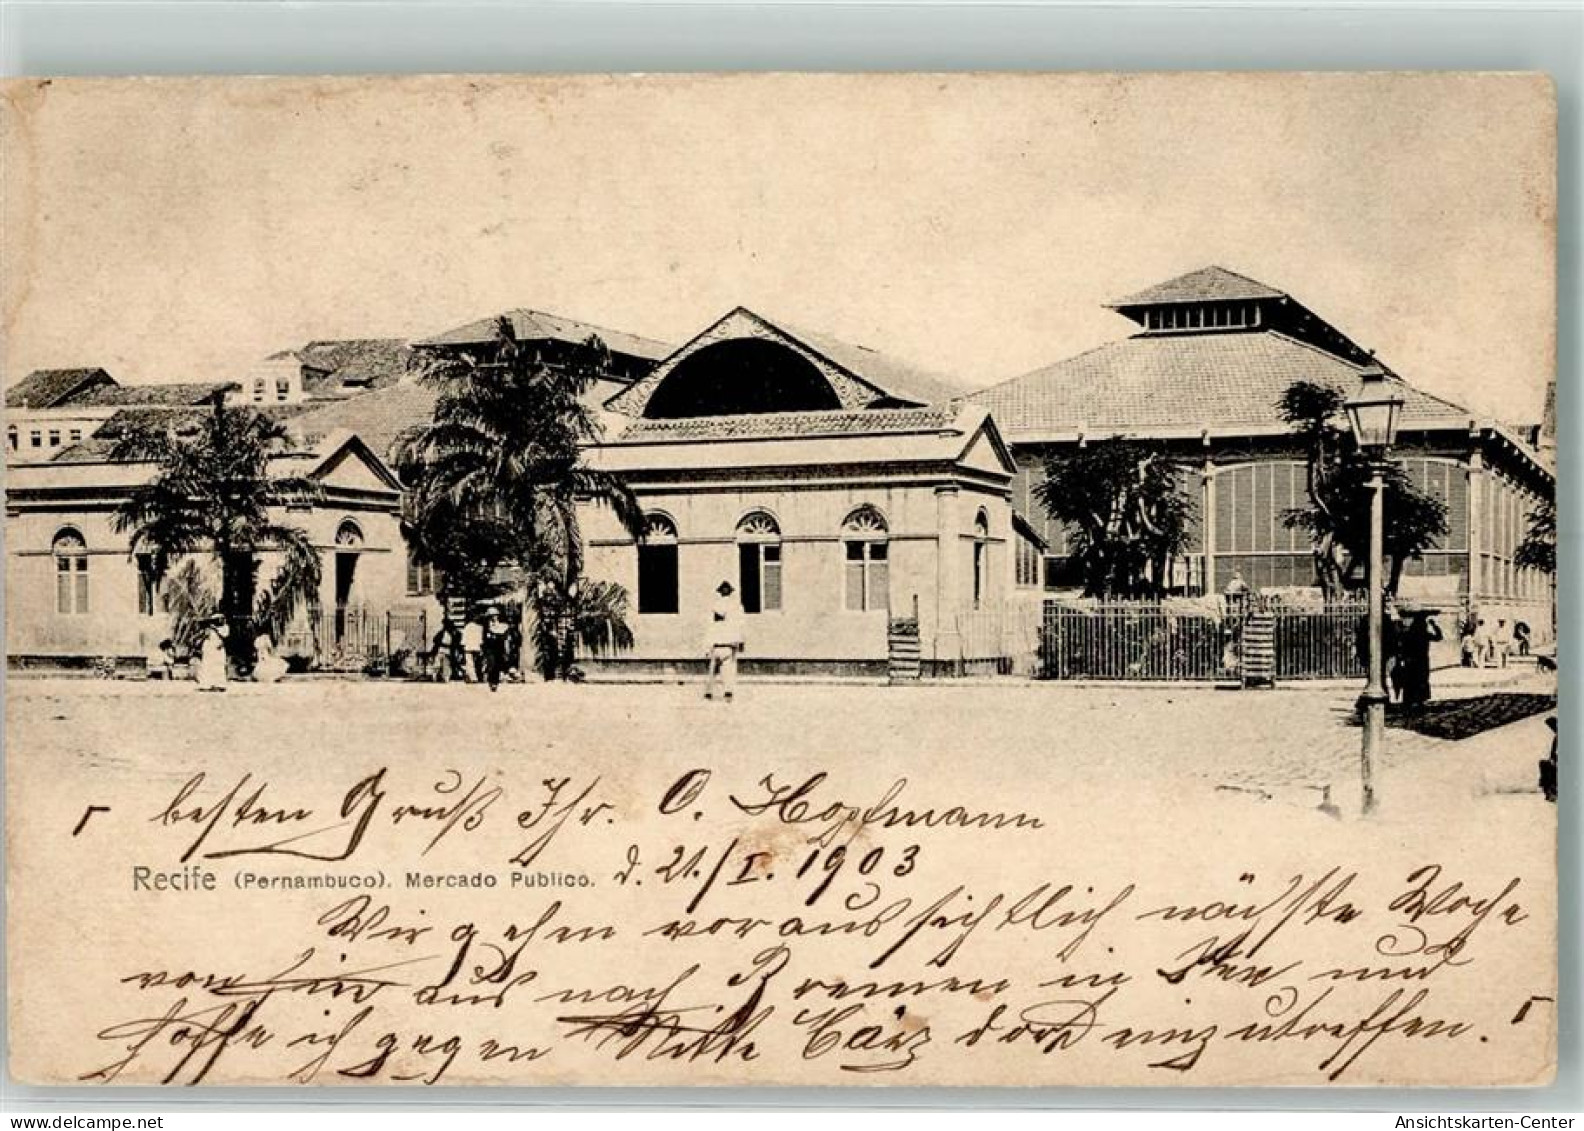 besten Gruß Ihr. O. Hopfmann
Recife (Pernambuco). Mercado Publico. d. 21./I. 1903
Wir gehen voraussichtlich nächste Woche
von hier aus nach Bremen in See und
hoffe ich gegen Mitte März dort einzutreffen.
www.delcampe.net
Ansichtskarten-Center